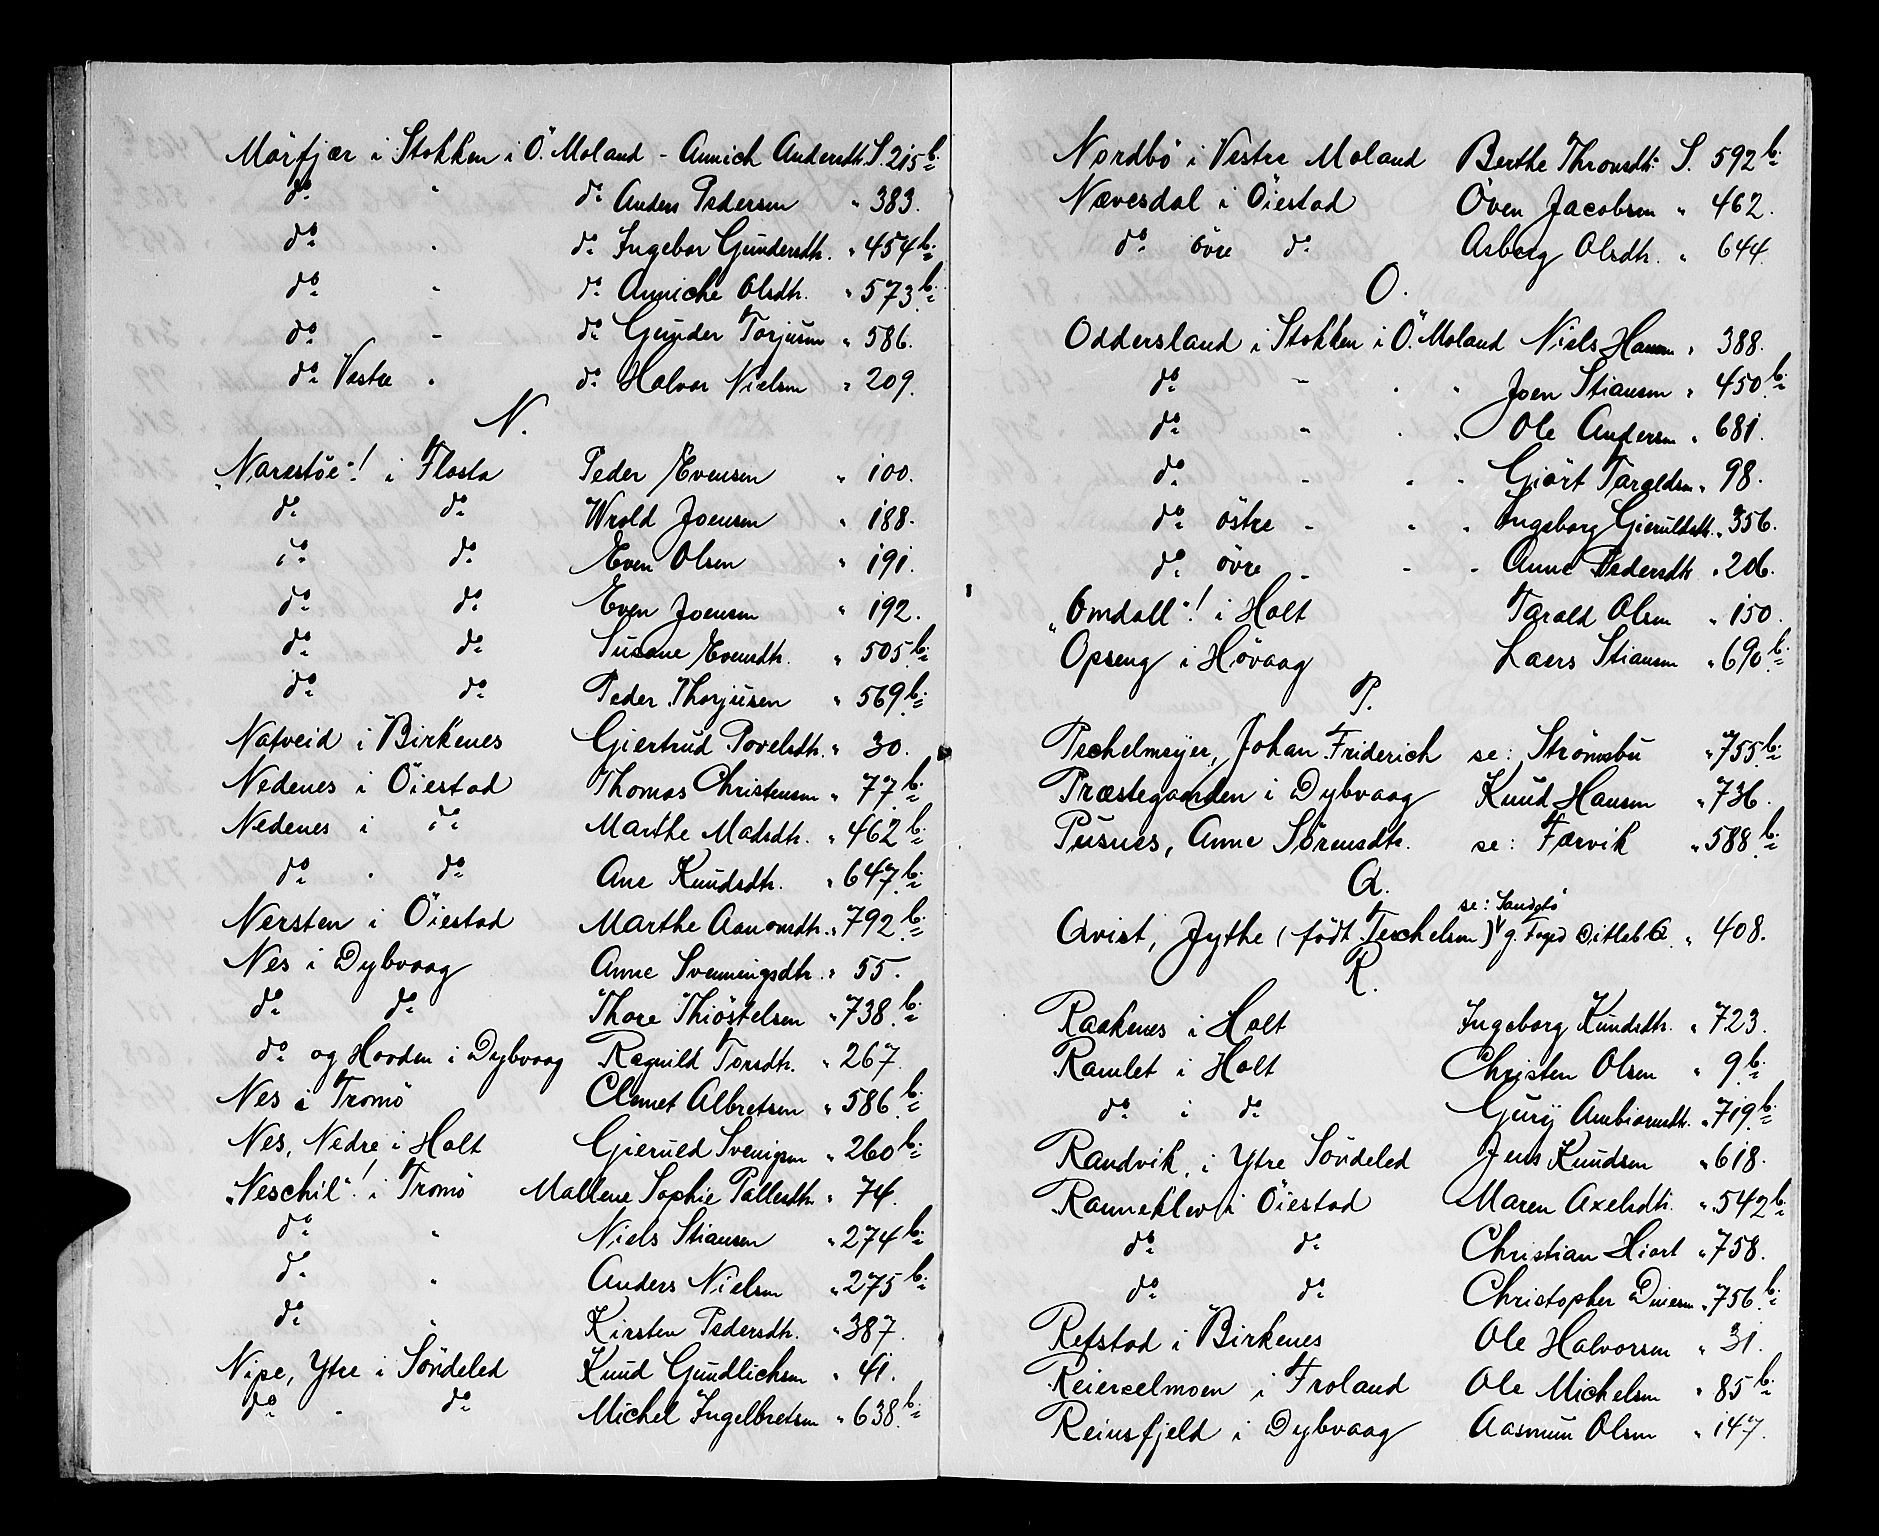 Mörfjær i Stokken i Ö. Moland - Annich Andersdtr. S. 215 b.
do " do Anders Pedersen " 383.
do " do Ingebor Gundersdtr. " 454 b.
do " do Anniche Olsdtr. " 573 b.
do " do Gunder Torjusen " 586.
do Vestre " do Halvor Nielsen " 209.
N.
"Narestöe"! i Flosta Peder Evensen " 100.
do do Wrold Joensen " 188.
do do Even Olsen " 191.
do do Even Joensen " 192.
do do Susane Evensdtr. " 505 b.
do do Peder Thorjusen " 569 b.
Natveid i Birkenes Giertrud Povelsdtr. " 30.
Nedenes i Öiestad Thomas Christensen " 77 b.
Nedenes i do Marthe Madsdtr. " 462 b.
do " do Ane Knudsdtr. " 647 b.
Nersten i Öiestad Marthe Aanonsdtr. " 792 b.
Nes i Dybvaag Anne Svenningsdtr. " 55.
do do Thore Thiöstelsen " 738 b.
do og Hovden i Dybvaag Ragnild Torsdtr. " 267.
Nes i Tromö Clemet Albretsen " 586 b.
Nes, Nedre i Holt Gieruld Svenigsen " 260 b.
"Neschil"! i Tromö Mallene Sophie Pallesdtr. " 74.
do " Niels Stiansen " 274 b.
do " Anders Nielsen " 275 b.
do " Kirsten Pedersdtr. " 387.
Nipe, Ytre i Söndeled Knud Gundlichsen " 41.
do " do Michel Ingelbretsen " 638 b.
Nordbö i Vestre Moland Berthe Thronsdtr. S. 592 b.
Nævesdal i Öiestad Öven Jacobsen " 462.
do övre do Asberg Olsdtr. " 644.
O.
Oddersland i Stokken i Ö. Moland Niels Hansen " 388.
do " " " Joen Stiansen " 450 b.
do " " " Ole Andersen " 681.
do " " " Giört Taraldsen " 98.
do östre " " " Ingeborg Gieruldsdtr. " 356.
do övre " " " Anne Pedersdtr " 206.
"Omdall"! i Holt Tarald Olsen " 150.
Opseng i Hövaag Laers Stiansen " 690 b.
P.
Pechelmeyer, Johan Friderich se: Strömsbu " 755 b.
Præstegaarden i Dybvaag Knud Hansen " 736.
Pusnes, Anne Sörensdtr. se: Færvik " 588 b.
Q.
se: Sandstö
Qvist, Jythe (födt Techelsen) g. Foged Ditleb Q. " 408.
R.
Raakenes i Holt Ingeborg Knudsdtr. " 723.
Ramlet i Holt Christen Olsen " 9 b.
do i do Gury Ambiornsdtr. " 719 b.
Randvik, i Ytre Söndeled Jens Knudsen " 618.
Ranneklev i Öiestad Maren Axelsdtr. " 542 b.
do do Christian Hiort " 758.
do do Christopher Dinesen " 756 b.
Refstad i Birkenes Ole Halvorsen " 31.
Reierselmoen i Froland Ole Michelsen " 85 b.
Reinsfjeld i Dybvaag Aasmun Olsen " 147.